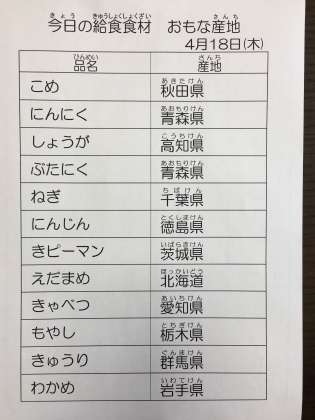 今日の給食食材　おもな産地
4月18日(木)
品名　産地
こめ　秋田県
にんにく　青森県
しょうが　高知県
ぶたにく　青森県
ねぎ　千葉県
にんじん　徳島県
きピーマン　茨城県
えだまめ　北海道
きゃべつ　愛知県
もやし　栃木県
きゅうり　群馬県
わかめ　岩手県